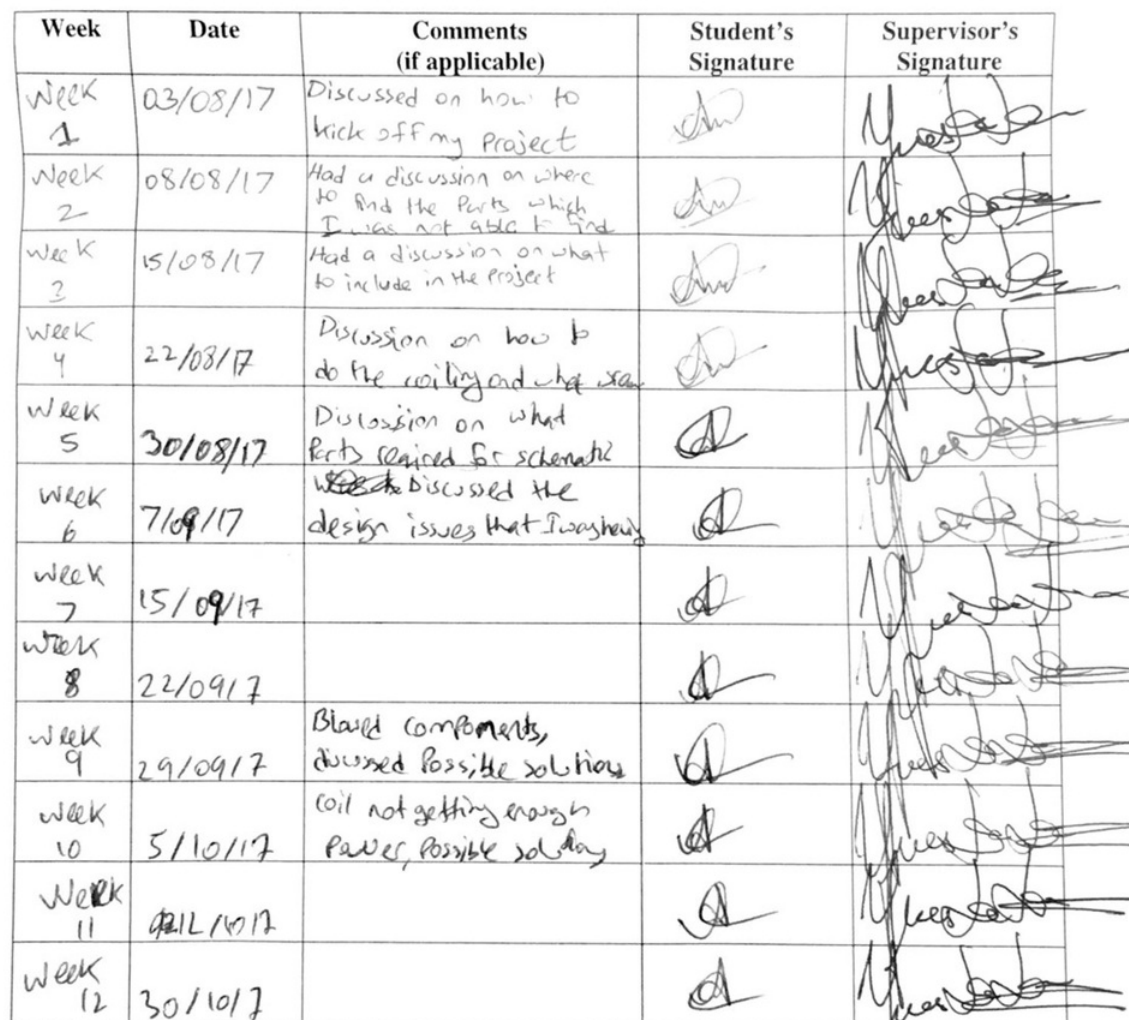 Week Date Comments Student's Supervisor's
(if applicable) Signature Signature
Week 03/08/17 Discussed on how to
1 kick off my Project
Week 08/08/17 Had a discussion on where
2 to find the Parts which
I was not able to find
Week 15/08/17 Had a discussion on what
3 to include in the Project
Week 22/08/17 Discussion on how to
4 do the coiling and what
Week 30/08/17 Discussion on what
5 Parts reqired for schematic
Week 7/09/17 Discussed the
6 design issues that I was having
Week 15/09/17
7
Week 22/09/7
8
Week 29/09/7 components,
9 discussed Possible solutions
Week 5/10/17 coil not getting enough
10 Power, Possible solutions
Week
11
Week 30/10/7
12